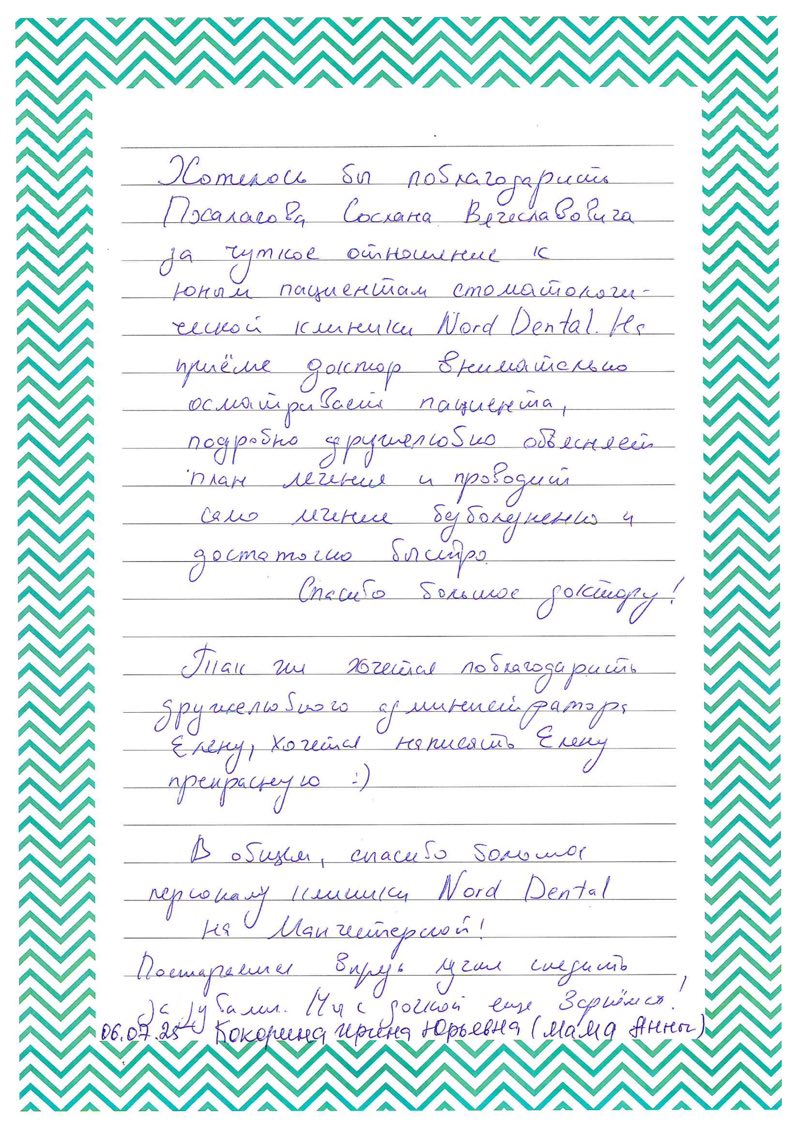 Хотелось бы поблагодарить
Пхалагова Сослана Вячеславовича
за чуткое отношение к
юным пациентам стоматологи-
ческой клиники Nord Dental. На
приёме доктор внимательно
осматривает пациента,
подробно дружелюбно объясняет
план лечения и проводит
само лечение безболезненно и
достаточно быстро.
Спасибо большое доктору!
Так же хочется поблагодарить
дружелюбного администратора
Елену, хочется написать Елену
прекрасную :)
В общем, спасибо большое
персоналу клиники Nord Dental
на Манчестерской!
Постараемся впредь лучше следить
за зубами. Мы с дочкой еще вернёмся!
06.07.25 Кокорина Ирина Юрьевна (мама Анны)